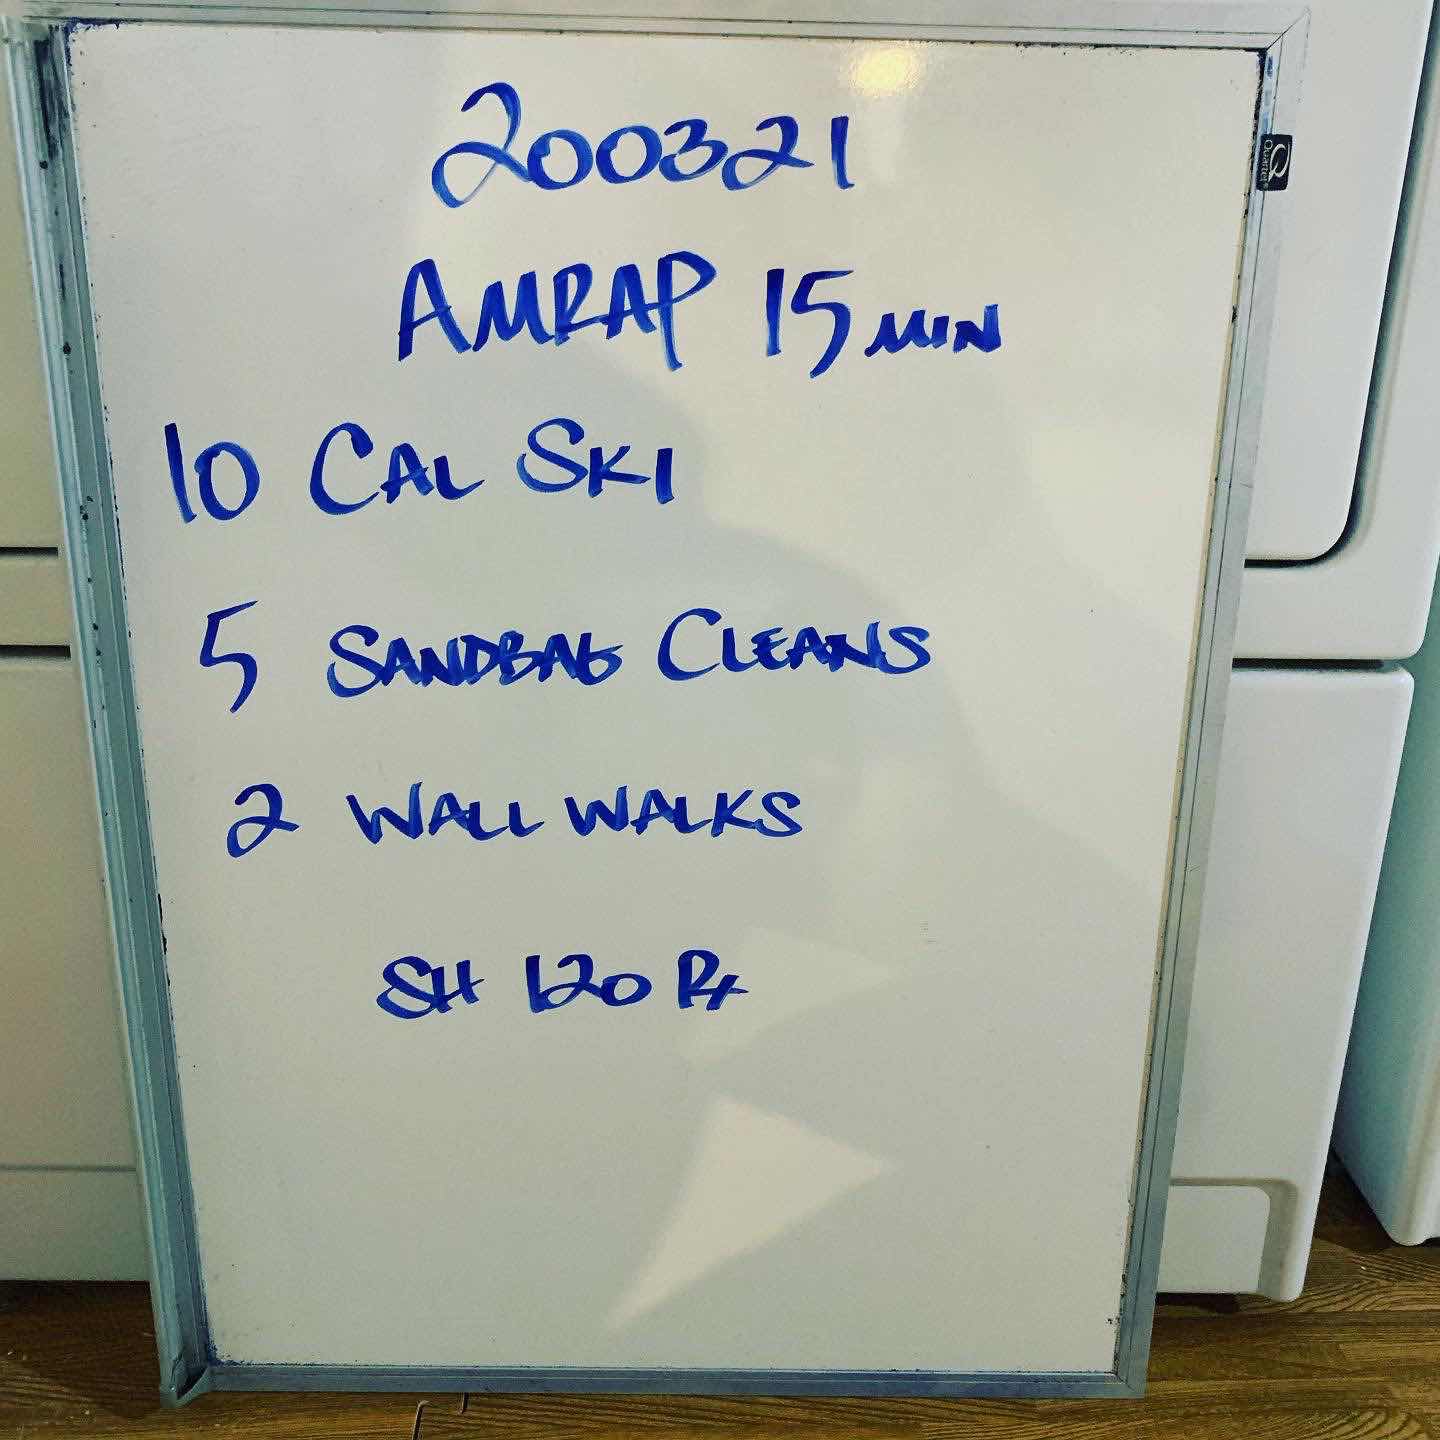 200321
AMRAP 15 MIN
10 CAL SKI
5 SANDBAG CLEANS
2 WALL WALKS
SH 120 Rx
Quartet